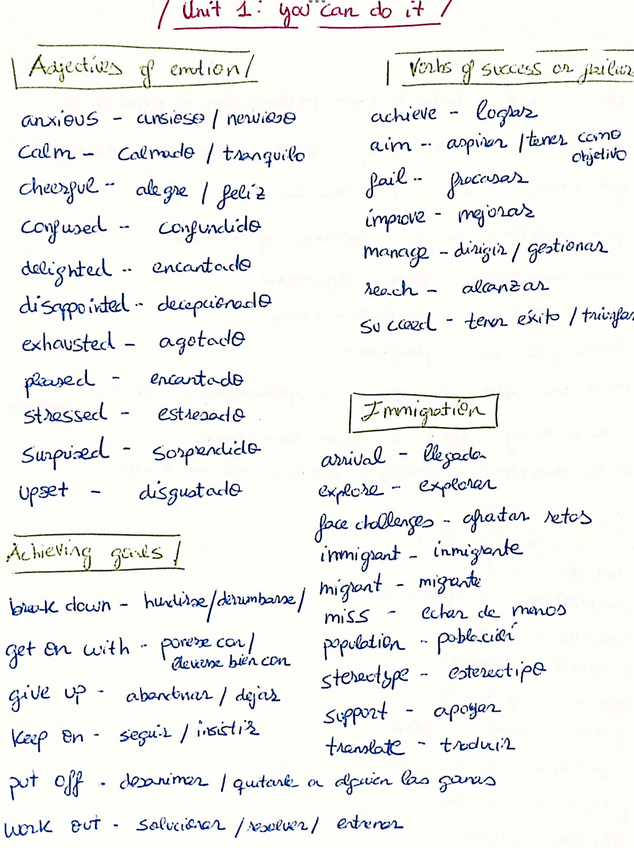 / Unit 1: you can do it /
Adjectives of emotion /
anxious - ansioso / nervioso
calm - calmado / tranquilo
cheerful - alegre / feliz
confused - confundido
delighted - encantado
disappointed - decepcionado
exhausted - agotado
pleased - encantado
stressed - estresado
surprised - sorprendido
upset - disgustado
Achieving goals /
break down - hundirse / derrumbarse /
get on with - ponerse con /
llevarse bien con
give up - abandonar / dejar
keep on - seguir / insistir
put off - desanimar / quitarle a alguien las ganas
work out - solucionar / resolver / entrenar
Verbs of success or failure
achieve - lograr
aim - aspirar / tener como
objetivo
fail - fracasar
improve - mejorar
manage - dirigir / gestionar
reach - alcanzar
succeed - tener éxito / triunfar
Immigration
arrival - llegada
explore - explorar
face challenges - afrontar retos
immigrant - inmigrante
migrant - migrante
miss - echar de menos
population - población
stereotype - estereotipo
support - apoyar
translate - traducir